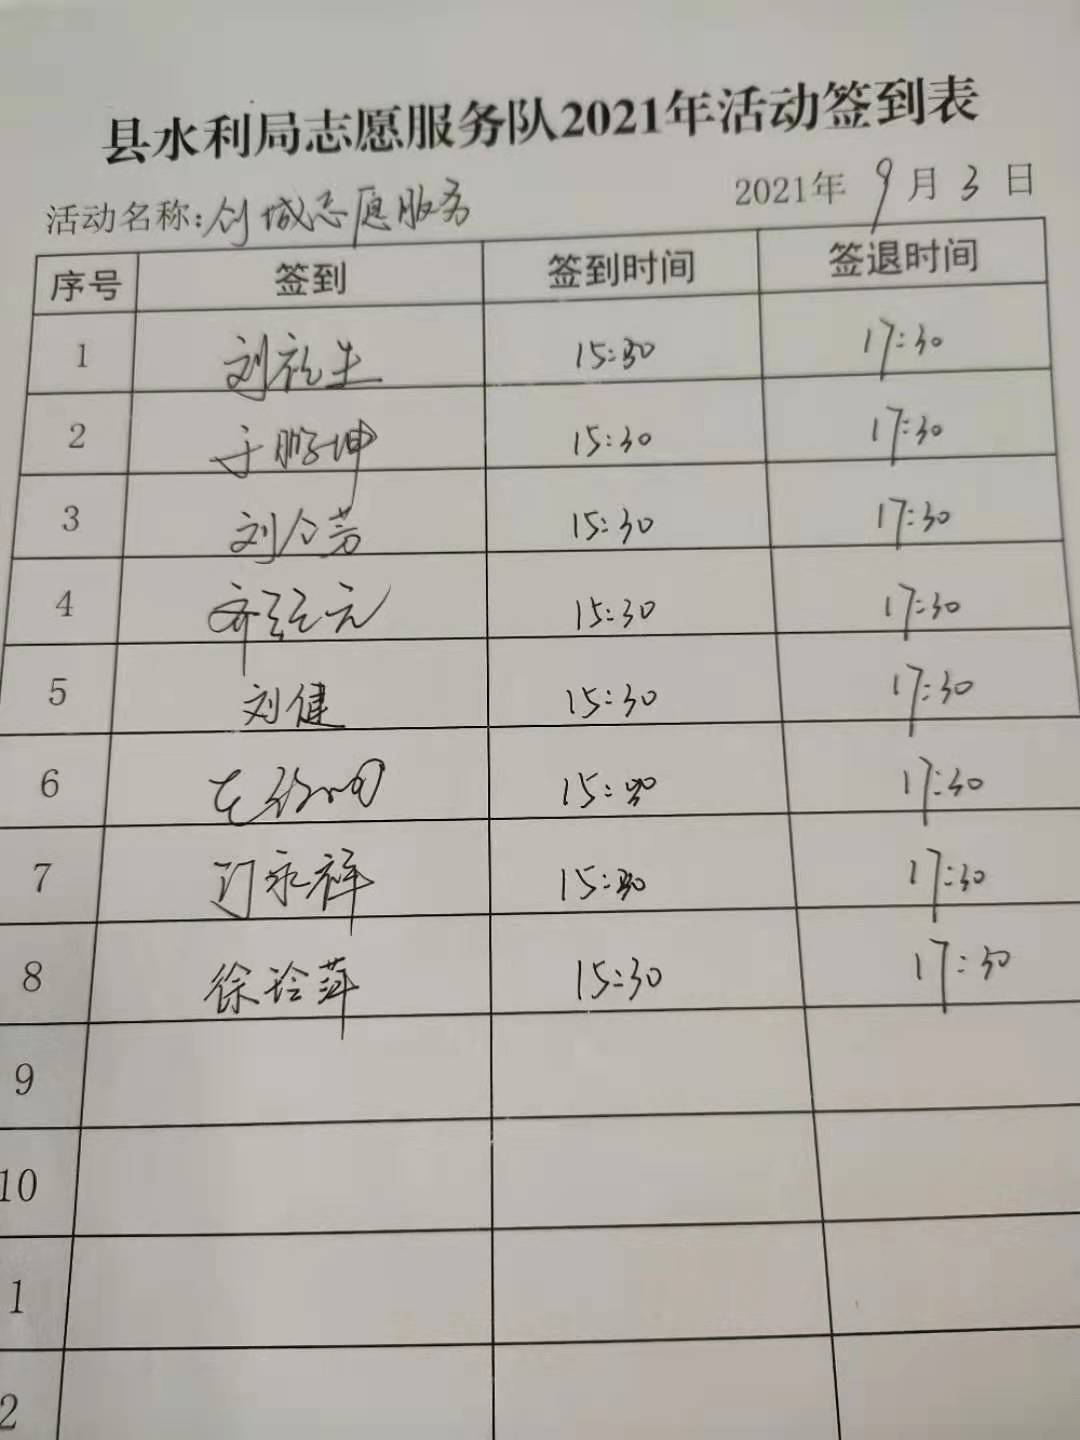 县水利局志愿服务队2021年活动签到表
活动名称:创城志愿服务 2021年 9月 3日
序号 签到 签到时间 签退时间
1 15:30 17:30
2 于鹏坤 15:30 17:30
3 15:30 17:30
4 15:30 17:30
5 刘健 15:30 17:30
6 15:30 17:30
7 闫永祥 15:30 17:30
8 徐玲萍 15:30 17:30
9
10
1
2